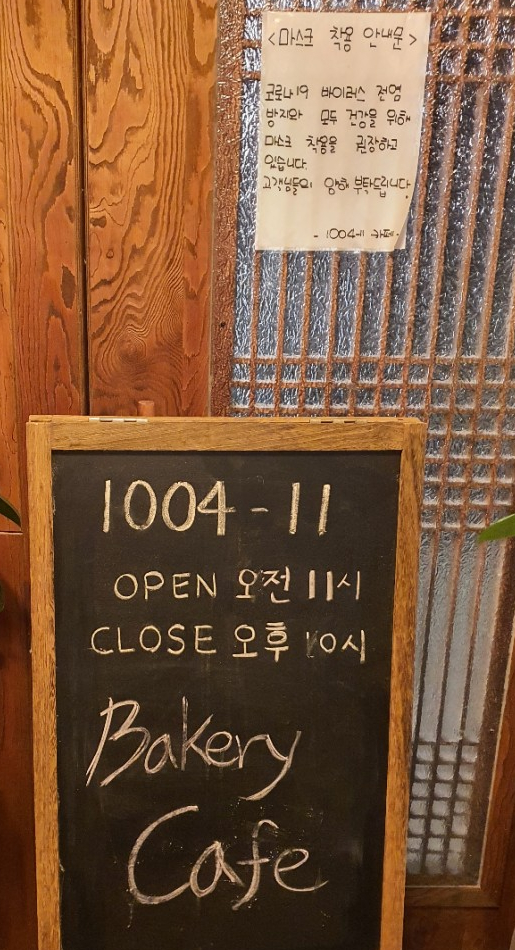 <마스크 착용 안내문>
코로나19 바이러스 전염
방지와 모두 건강을 위해
마스크 착용을 권장하고
있습니다.
고객님들의 양해 부탁드립니다.
- 1004-11 카페 -
1004-11
OPEN 오전 11시
CLOSE 오후 10시
Bakery
Cafe